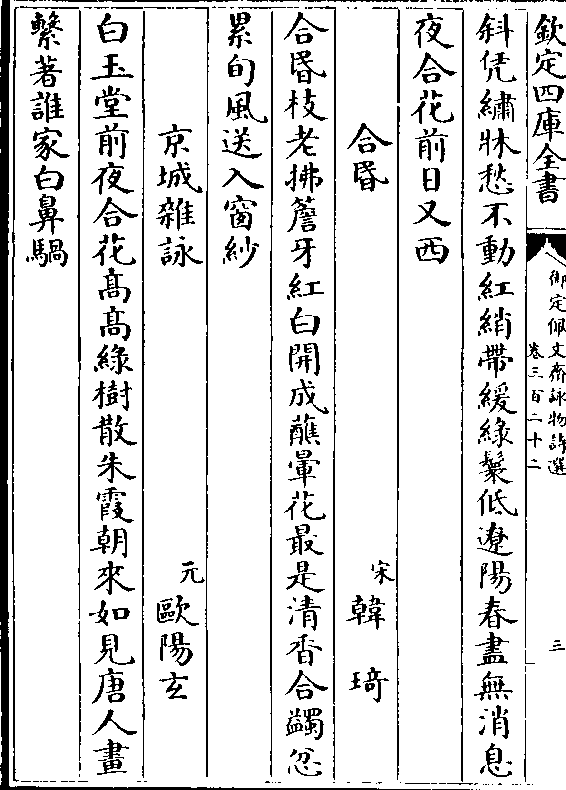 欽定四庫全書
御定佩文齋詠物詩選
卷三百二十二
三
斜凭繡牀愁不動紅綃帶緩綠鬟低遼陽春盡無消息
夜合花前日又西
合昏
宋韓琦
合昏枝老拂簷牙紅白開成蘸暈花最是清香合蠲忿
累旬風送入窗紗
京城雜詠
元歐陽玄
白玉堂前夜合花髙髙綠樹散朱霞朝來如見唐人畫
繫著誰家白鼻騧